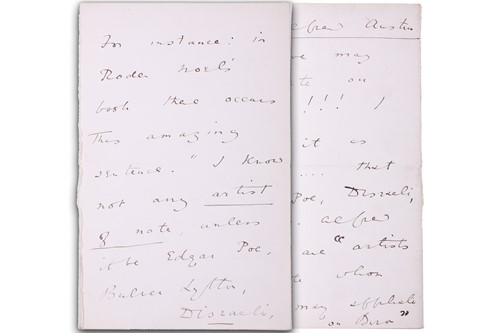 For instance: in
Roden Noel's
book there occurs
this amazing
sentence. "I know
not any artist
of note, unless
it be Edgar Poe,
Bulwer Lytton,
Disraeli,
Alfred Austin
we may
on
!!! I
it is
.... that
Poe, Disraeli,
Alfred
are "artists
whom
may
on Byron"